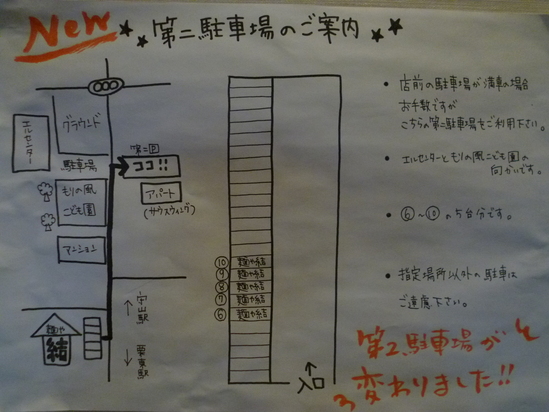 NEW
第二駐車場のご案内
エルセンター
グラウンド
駐車場
第二P
ココ!!
もりの風
こども園
アパート
(サウスウィング)
マンション
↑守山駅
↓栗東駅
麺や
結
⑩ 麺や結
⑨ 麺や結
⑧ 麺や結
⑦ 麺や結
⑥ 麺や結
入口
• 店前の駐車場が満車の場合
お手数ですが
こちらの第二駐車場をご利用下さい。
• エルセンターともりの風こども園の
向かいです。
• ⑥〜⑩の5台分です。
• 指定場所以外の駐車は
ご遠慮下さい。
第2駐車場が
変わりました!!